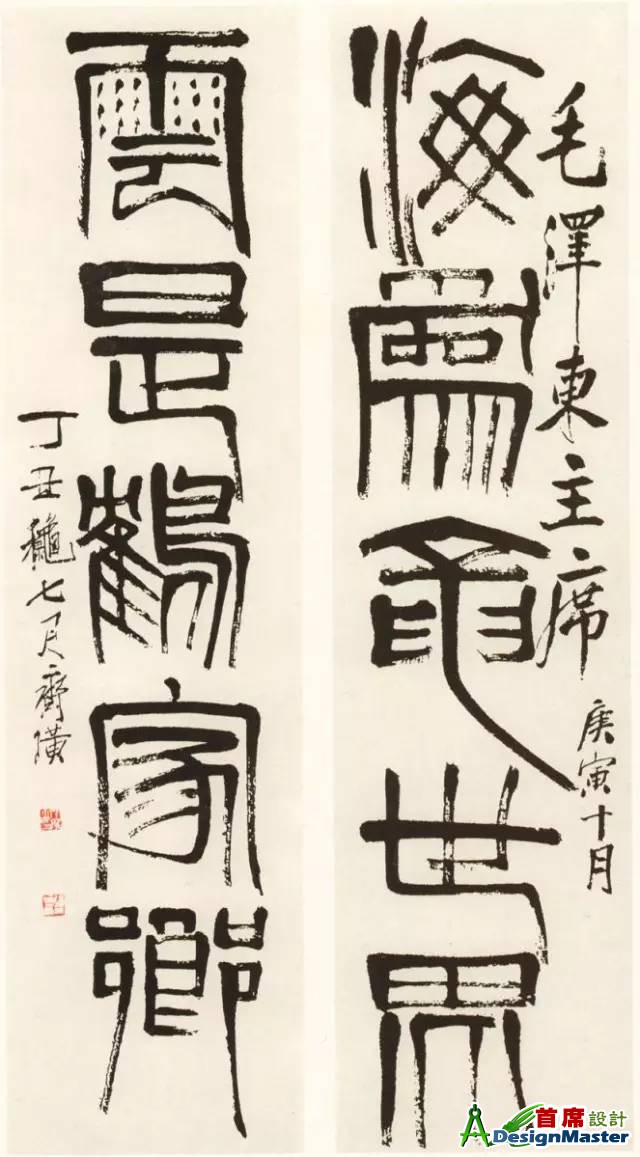 毛澤東主席
庚寅十月
海為龍世界
雲是鶴家鄉
丁丑龝七月齊璜
首席設計
ADesignMaster